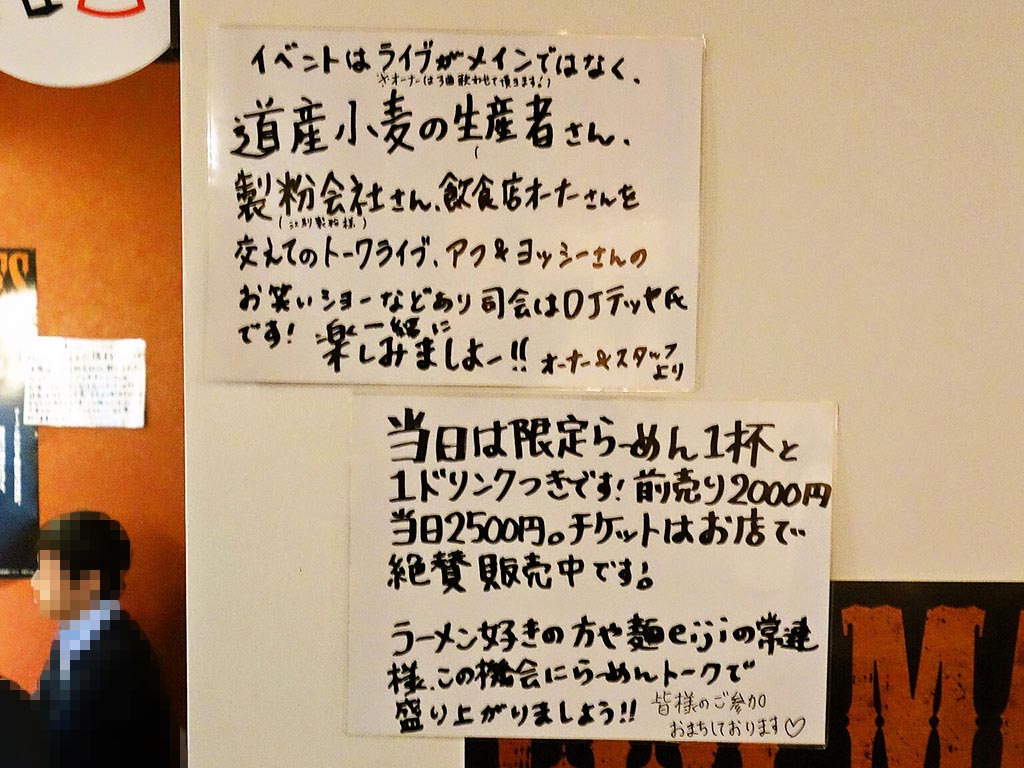 イベントはライブがメインではなく、
※オーナーは3曲歌わせて頂きます!)
道産小麦の生産者さん、
製粉会社さん、飲食店オーナーさんを
(江別製粉様)
交えてのトークライブ、アフ&ヨッシーさんの
お笑いショーなどあり司会はDJテツヤ氏
です! 楽しみましょー!!
一緒に
オーナー&スタッフ
より
当日は限定らーめん1杯と
1ドリンクつきです! 前売り2000円
当日2500円。チケットはお店で
絶賛販売中です!。
ラーメン好きの方や麺eijiの常連
様、この機会にらーめんトークで
盛り上がりましょう!!
皆様のご参加
おまちしております♡